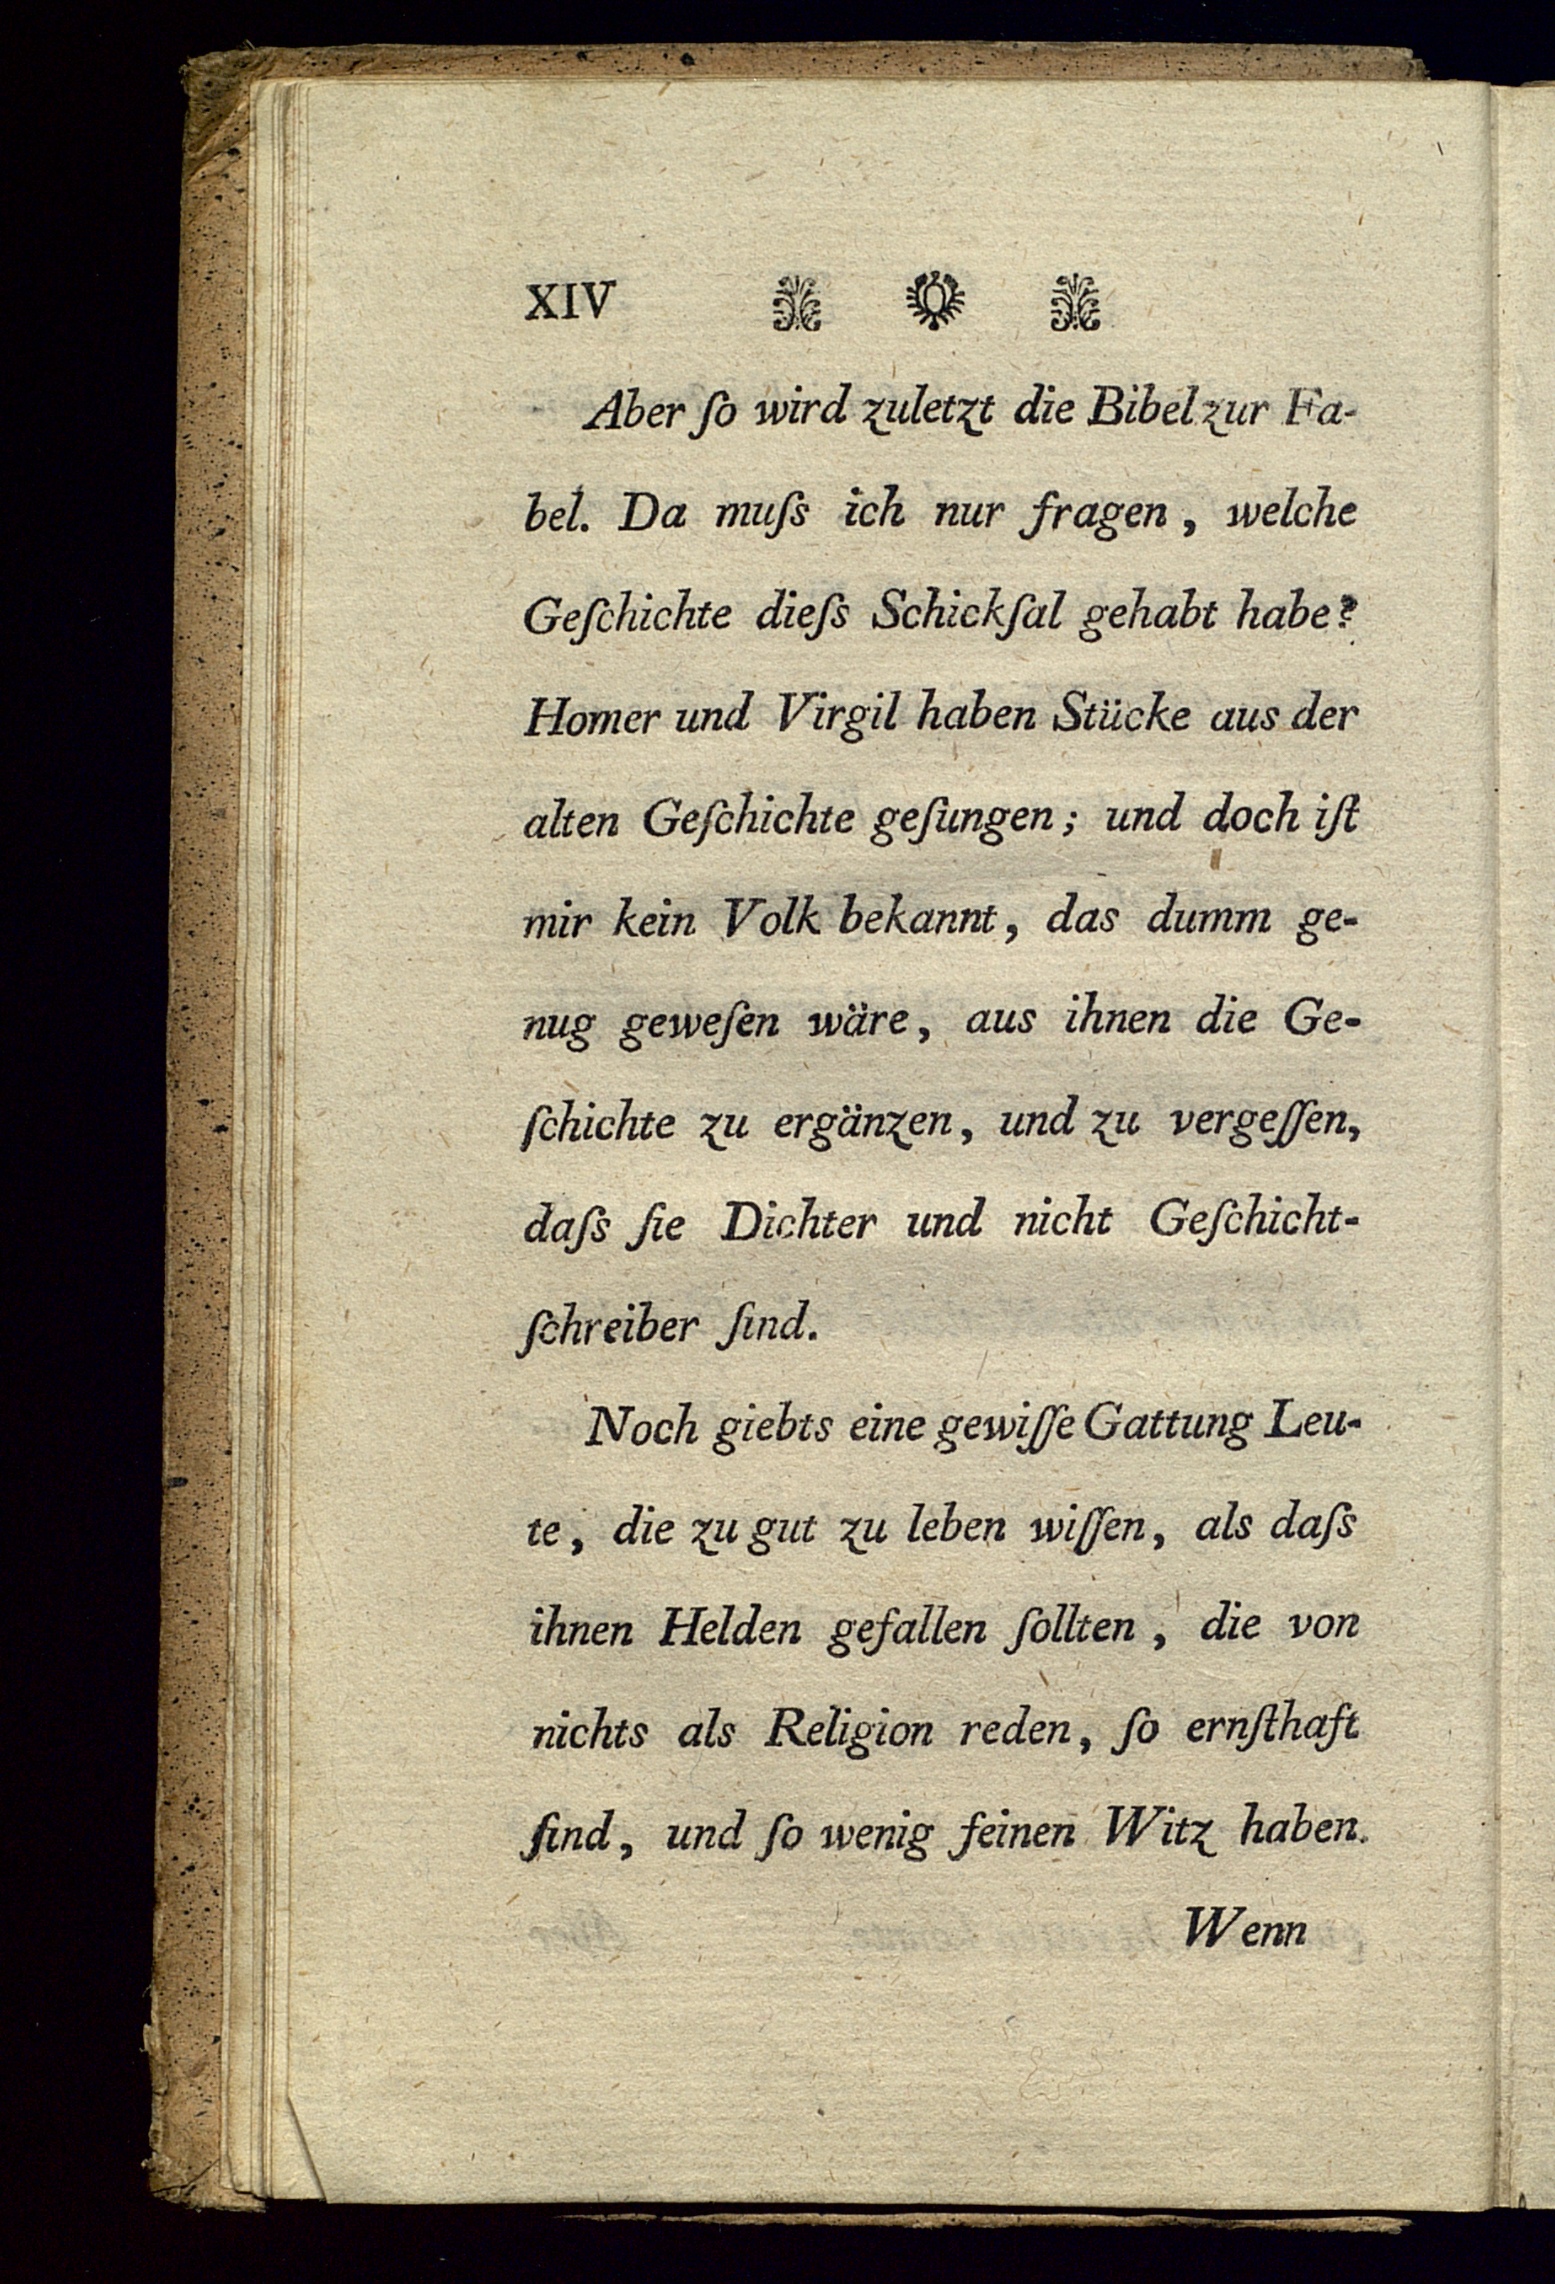 XIV
Aber ſo wird zuletzt die Bibel zur Fa-
bel. Da muſs ich nur fragen, welche
Geſchichte dieſs Schickſal gehabt habe?
Homer und Virgil haben Stücke aus der
alten Geſchichte geſungen; und doch iſt
mir kein Volk bekannt, das dumm ge-
nug geweſen wäre, aus ihnen die Ge-
ſchichte zu ergänzen, und zu vergeſſen,
daſs ſie Dichter und nicht Geſchicht-
ſchreiber ſind.
Noch giebts eine gewiſſe Gattung Leu-
te, die zu gut zu leben wiſſen, als daſs
ihnen Helden gefallen ſollten, die von
nichts als Religion reden, ſo ernſthaft
ſind, und ſo wenig feinen Witz haben.
Wenn